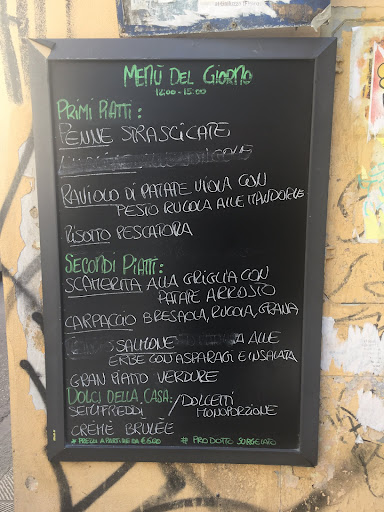 MENÙ DEL GIORNO
12:00 - 15:00
PRIMI PIATTI:
PENNE STRASCICATE
RAVIOLO DI PATATE VIOLA CON
PESTO RUCOLA ALLE MANDORLE
RISOTTO PESCATORA
SECONDI PIATTI:
SCAMERITA ALLA GRIGLIA CON
PATATE ARROSTO
CARPACCIO BRESAOLA, RUCOLA, GRANA
SALMONE ALLE
ERBE CON ASPARAGI E INSALATA
GRAN PIATTO VERDURE
DOLCI DELLA CASA:
SEMIFREDDI / DOLCETTI
MONOPORZIONE
CRÈME BRULÈE
* PREZZI A PARTIRE DA € 6.00 * PRODOTTO SURGELATO